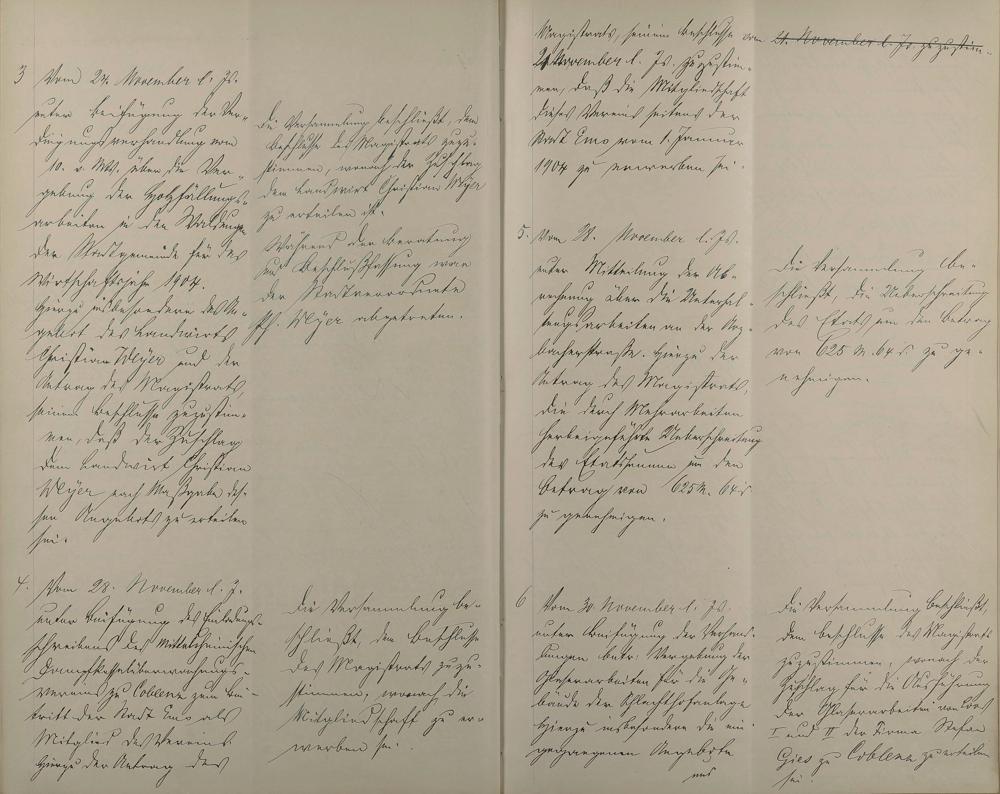 3
Vom 24. November l. Js.
unter Beifügung der Ver-
dingungsverhandlung vom
10. v. Mts. über die Ver-
gebung der Holzfällungs-
arbeiten in den Waldungen
der Stadtgemeinde für das
Wirtschaftsjahr 1904.
Hierzu insbesondere das An-
gebot des Landwirts
Christian Weyer und der
Antrag des Magistrats,
seinem Beschlusse zuzustim-
men, daß der Zuschlag
dem Landwirt Christian
Weyer nach Maßgabe des-
sen Angebots zu erteilen
sei.
Die Versammlung beschließt, dem
Beschlusse des Magistrats zuzu-
stimmen, wonach der Zuschlag
dem Landwirt Christian Weyer
zu erteilen ist.
Während der Beratung
und Beschlußfassung war
der Stadtverordnete
Ph. Weyer abgetreten.
4.
Vom 28. November l. J.
unter Beifügung des Einladungs-
schreibens des Mittelrheinischen
Dampfkesselüberwachungs-
vereins zu Coblenz zum Bei-
tritt der Stadt Ems als
Mitglied des Vereins.
Hierzu der Antrag des
Die Versammlung be-
schließt, dem Beschlusse
des Magistrats zuzu-
stimmen, wonach die
Mitgliedschaft zu er-
werben sei.
Magistrats, seinem Beschlusse vom 21. November l. Js. zuzustim-
21. November l. Js. zuzustim-
men, daß die Mitgliedschaft
dieses Vereins seitens der
Stadt Ems vom 1. Januar
1904 zu erwerben sei.
5.
Vom 28. November l. Js.
unter Mitteilung der Ab-
rechnung über die Unterhal-
tungsarbeiten an der
Hierzu der
Antrag des Magistrats,
die durch Mehrarbeiten
herbeigeführte Ueberschreitung
der Etatssumme um den
Betrag von 625 M. 64 S
zu genehmigen.
Die Versammlung be-
schließt, die Ueberschreitung
des Etats um den Betrag
von 625 M. 64 S zu ge-
nehmigen.
6
Vom 30. November l. Js.
unter Beifügung der Verhand-
lungen betr. Vergebung der
Glaserarbeiten für die Ge-
bäude der Schlachthofanlage.
Hierzu insbesondere die ein-
gegangenen Angebote
und
Die Versammlung beschließt,
dem Beschlusse des Magistrats
zuzustimmen, wonach der
Zuschlag für die Ausführung
der Glaserarbeiten von Loos
I und II der Firma Stefan
Gies zu Coblenz zu erteilen
sei.